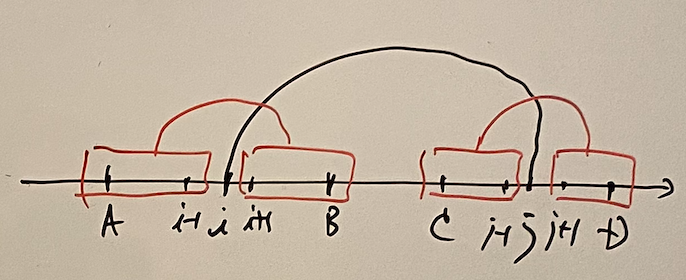 A i-1 i i+1 B C j-1 j j+1 D